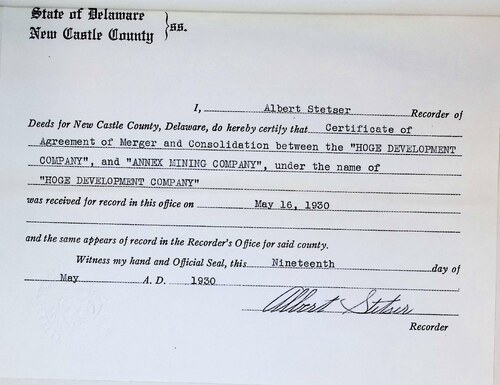 State of Delaware
New Castle County } ss.
I, Albert Stetser Recorder of
Deeds for New Castle County, Delaware, do hereby certify that Certificate of
Agreement of Merger and Consolidation between the "HOGE DEVELOPMENT
COMPANY", and "ANNEX MINING COMPANY", under the name of
"HOGE DEVELOPMENT COMPANY"
was received for record in this office on May 16, 1930
and the same appears of record in the Recorder's Office for said county.
Witness my hand and Official Seal, this Nineteenth day of
May A. D. 1930
Albert Stetser
Recorder